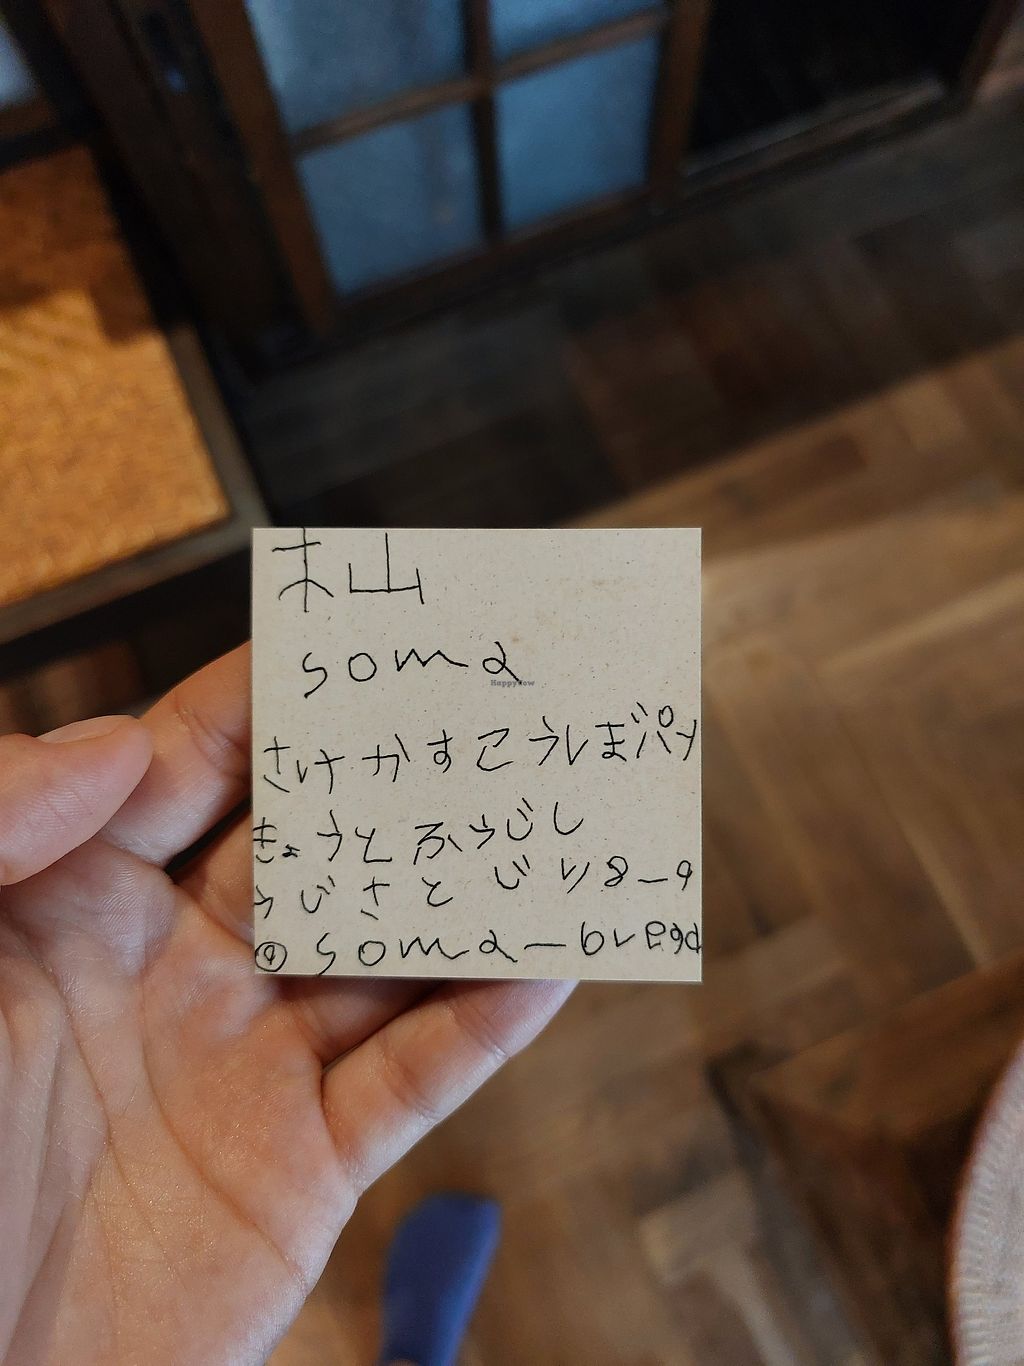 杣
soma
さけかすこうぼパン
きょうとふうじし
うじさとじり8-9
@soma-bread